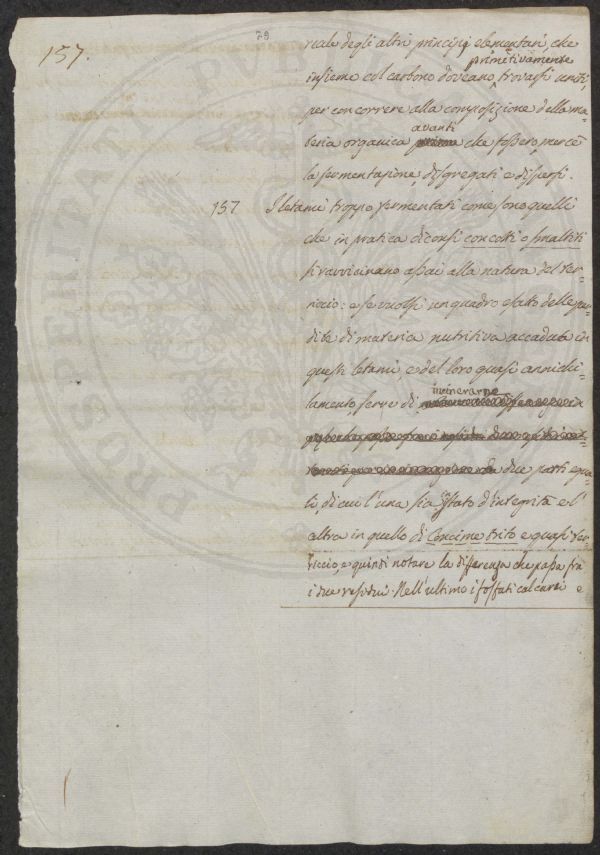 157.
29
reale degli altri principj elementari, che
primitivamente
insieme col carbono doveano trovarsi uniti,
per concorrere alla composizione della ma-
avanti
teria organica che fossero, mercè
la fermentazione, disgregati e dispersi.
157 I letami troppo fermentati come sono quelli
che in pratica diconsi concotti o smaltiti
si ravvicinano assai alla natura del ter-
riccio: e se vuolsi un quadro esatto delle per-
dite di materia nutritiva accadute in
questi letami, e del loro quasi annichi-
incinerarne
lamento, serve di
due parti egua-
li, di cui l'una sia in istato d'integrità e l'
altra in quello di Concime trito e quasi ter-
riccio, e quindi notare la differenza che passa fra
i due residui. Nell'ultimo i fosfati calcarei e
PROSPERITATI PUBLICAE